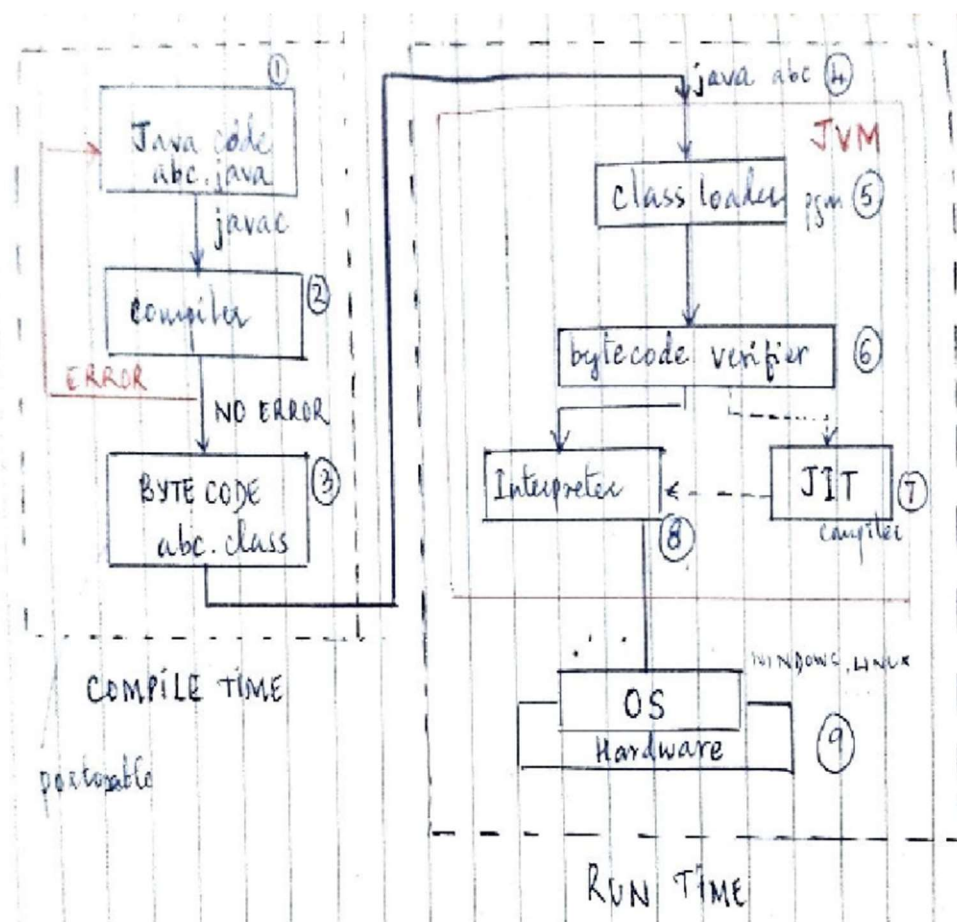 ①
Java code
abc.java
javac
compiler ②
ERROR
NO ERROR
BYTE CODE ③
abc.class
COMPILE TIME
java abc ④
JVM
class loader pgm ⑤
bytecode verifier ⑥
Interpreter ⑧
JIT ⑦
compiler
WINDOWS, LINUX
OS
Hardware ⑨
RUN TIME